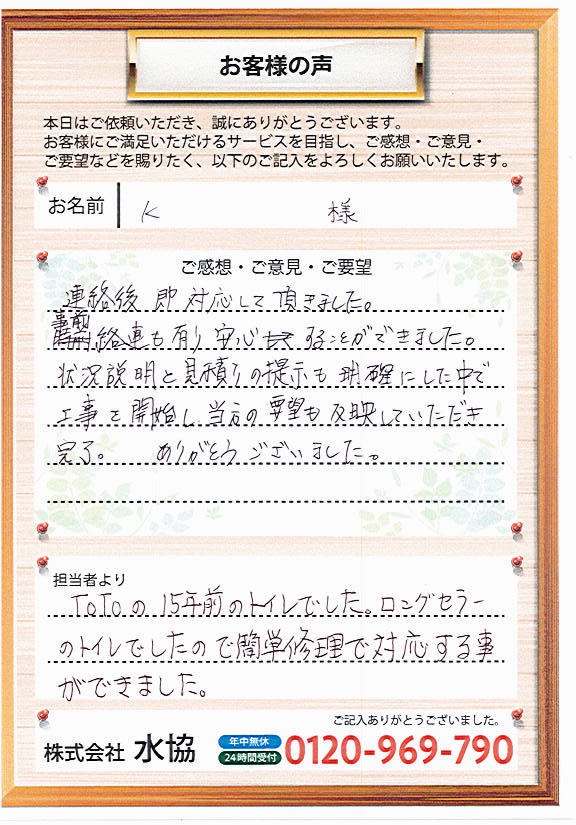 お客様の声
本日はご依頼いただき、誠にありがとうございます。
お客様にご満足いただけるサービスを目指し、ご感想・ご意見・
ご要望などを賜りたく、以下のご記入をよろしくお願いいたします。
お名前 K 様
ご感想・ご意見・ご要望
連絡後 即 対応して 頂きました。
事前絡連も有り 安心することができました。
状況説明と見積りの提示も 明確にした中で
工事を開始し、当方の要望も反映していただき
完了。 ありがとうございました。
担当者より
TOTOの15年前のトイレでした。ロングセラー
のトイレでしたので簡単修理で対応する事
ができました。
ご記入ありがとうございました。
株式会社 水協 年中無休 24時間受付 0120-969-790